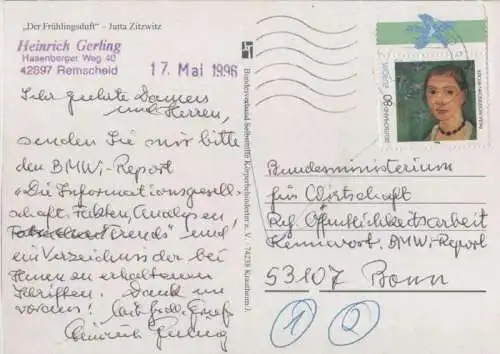 „Der Frühlingsduft“ - Jutta Zitzwitz
Heinrich Gerling
Hasenberger Weg 40
42897 Remscheid
17. Mai 1996
Sehr geehrte Damen
und Herren,
senden Sie mir bitte
den BMWi-Report
"Die Informationsgesell-
schaft. Fakten, Analysen,
Trends" und
ein Verzeichnis der bei
Ihnen zu erhaltenen
Schriften. Dank im
voraus! Mit frdl. Gruß
Heinrich Gerling
Bundesverband Selbsthilfe Körperbehinderter e.V. · 74238 Krautheim/J.
80
Bundesministerium
für Wirtschaft
Ref. Öffentlichkeitsarbeit
Kennwort: BMWi-Report
53107 Bonn
1 2